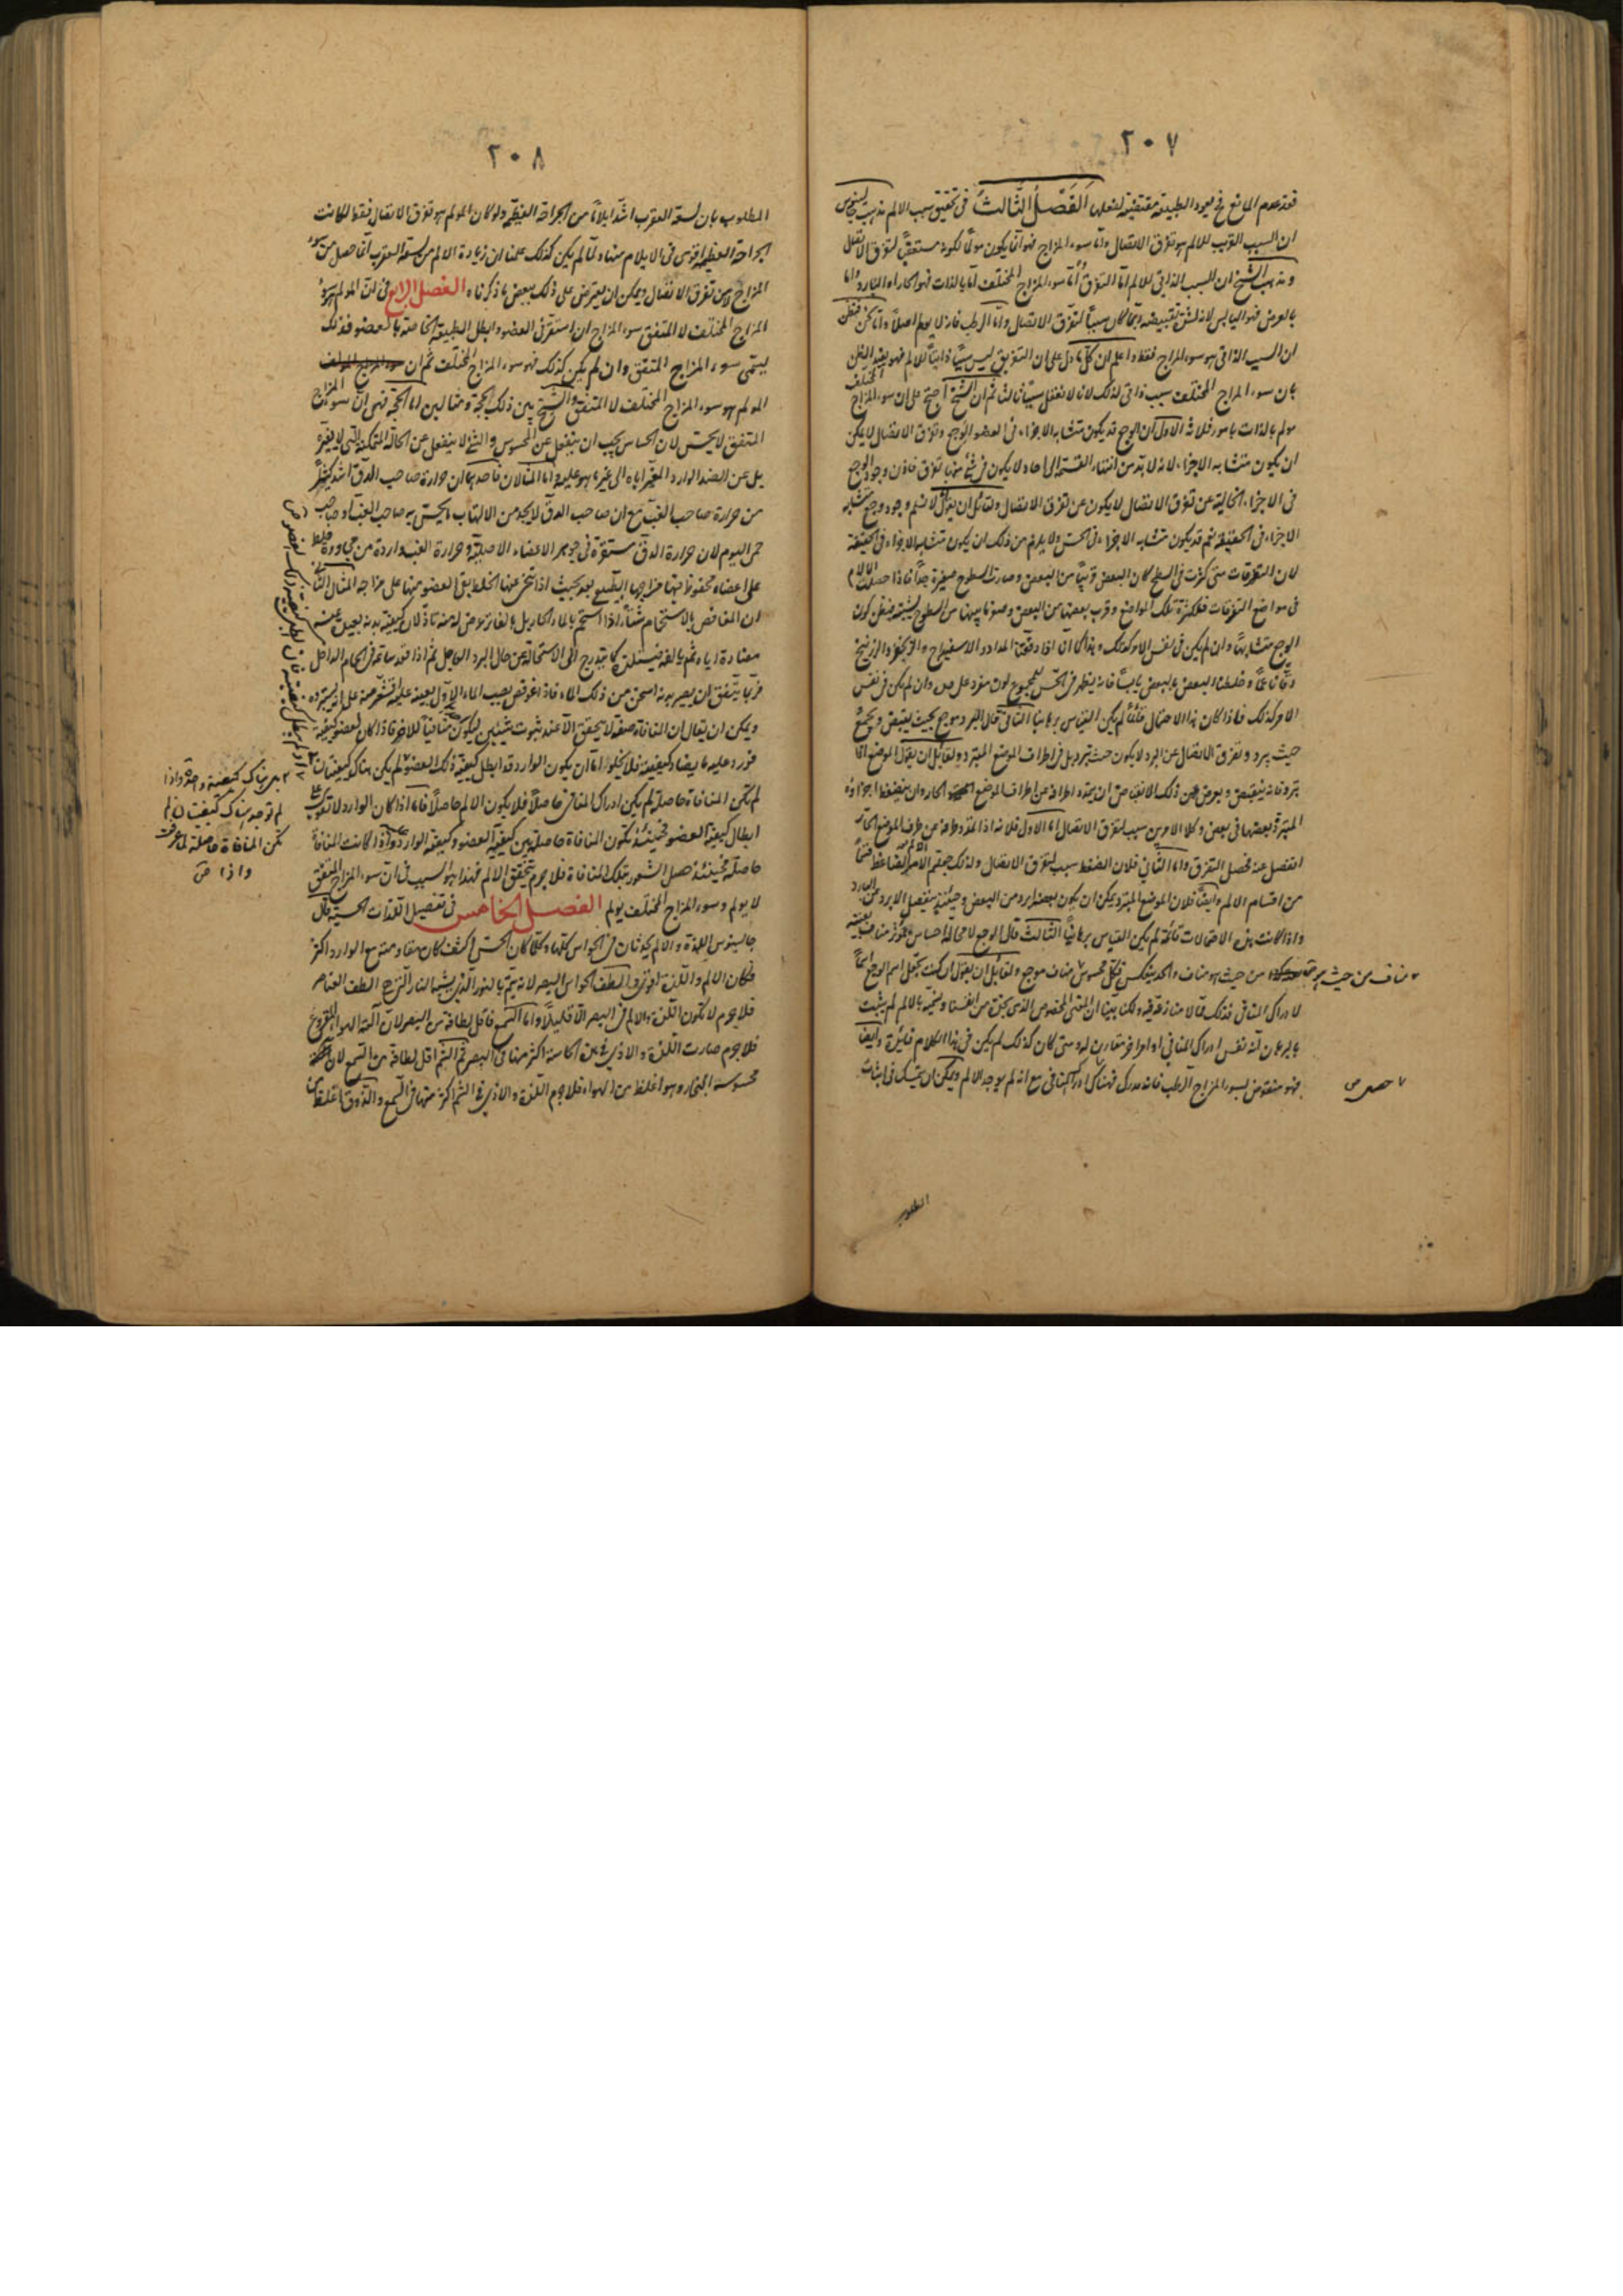 ٢٠٧
فعند عدم المانع في يعود الطبيعة مقتضية لفعلها الفصل الثالث في تحقيق سبب الالم مذهب جالينوس
ان السبب القريب للالم هو تفرق الاتصال واما سوء المزاج فهو انما يكون مولما لكونه مستعقبا لتفرق الاتصال
ومذهب الشيخ ان السبب الذاتي للالم اما التفرق واما سوء المزاج المختلف اما بالذات فهو الحار او البارد واما
بالعرض فهو اليابس لانه لشدة تقبيضه ربما كان سببا لتفرق الاتصال واما الرطب فانه لا يولم اصلا واما نحن فنظن
ان السبب الذاتي هو سوء المزاج فقط واعلم ان كل ما دل على ان التفريق ليس سببا ذاتيا للالم فهو يفيد الظن
بان سوء المزاج المختلف سبب ذاتي لذلك لانا لا نعقل سببا ثالثا ثم ان الشيخ احتج على ان سوء المزاج المختلف
مولم بالذات بامور ثلاثة الاول ان الوجع قد يكون متشابه الاجزاء في العضو الوجع وتفرق الاتصال لا يمكن
ان يكون متشابه الاجزاء لانه لا بد من انتهاء القسمة الى ما لا يكون في شئ منها تفرق فاذن وجود الوجع
في الاجزاء الخالية عن تفرق الاتصال لا يكون عن تفرق الاتصال ولقائل ان يقول لا نسلم وجود وجع متشابه
الاجزاء في الحقيقة نعم قد يكون متشابه الاجزاء في الحس ولا يلزم من ذلك ان يكون متشابه الاجزاء في الحقيقة
لان التفرقات متى كثرت في السطح كان البعض قريبا من البعض وصارت السطوح صغيرة جدا فاذا حصلت الالام
في مواضع التفرقات فلكثرة تلك المواضع وقرب بعضها من البعض وصغر ما بينها من السطوح يشتبه فيظن كون
الوجع متشابها وان لم يكن في نفس الامر كذلك وهذا كما انا اذا دققنا المداد والاسفيداج والزنجفر والزرنيخ
دقا ناعما وخلطنا البعض بالبعض يابسا فانه يظهر في الحس للمجموع لون مفرد على حدة وان لم يكن في نفس
الامر كذلك فاذا كان هذا الاحتمال قائما لم يكن القياس برهانيا الثاني قال البرد موجع بحيث يقبض ويجمع
حيث يبرد وتفرق الاتصال عن البرد لا يكون حيث يبرد بل في اطراف الموضع المتبرد ولقائل ان يقول الموضع اذا
تبرد فانه ينقبض ويعرض من ذلك الانقباض ان يتمدد اطرافه عن اطراف الموضع الحار وان ينضغط اجزاؤه
المتبردة بعضها في بعض وكلا الامرين سبب لتفرق الاتصال اما الاول فلانه اذا تمدد طرفه عن طرف الموضع الحار
انفصل عنه فحصل التفرق واما الثاني فلان الضغط سبب لتفرق الاتصال ولذلك جعلتم الالم الضاغط قسما
من اقسام الالم وايضا فلان الموضع المتبرد يمكن ان يكون بعضه ابرد من البعض وحينئذ ينفصل الابرد عن البارد
واذا كانت هذه الاحتمالات قائمة لم يكن القياس برهانيا الثالث قال الوجع لا محالة احساس بموثر مناف بغتة
مناف من حيث هو من حيث هو مناف والحد ينعكس فكل محسوس مناف موجع ولقائل ان يقول ان كنت تجعل اسم الوجع اسما
لادراك المنافي فذلك مما لا منازعة فيه ولكنا بينا ان المعنى المخصوص الذي نجده من انفسنا ونسميه بالالم لم يثبت
بالبرهان انه نفس ادراك المنافي او امر اخر مقارن له ومتى كان كذلك لم يكن في هذا الكلام فائدة وايضا
فهو منقوض بسوء المزاج الرطب فانه مدرك فهناك ادراك المنافي مع انه لم يوجد الالم ويمكن ان يتمسك في اثبات
حصر ص
المطلوب
٢٠٨
المطلوب بان لسعة العقرب اشد ايلاما من الجراحة العظيمة ولو كان المولم هو تفرق الاتصال فقط لكانت
الجراحة العظيمة اقوى في الايلام منها ولما لم يكن كذلك علمنا ان زيادة الالم من لسعة العقرب انما حصل من سوء
المزاج لا من تفرق الاتصال ويمكن ان يعترض على ذلك ببعض ما ذكرناه الفصل الرابع في ان المولم هو سوء
المزاج المختلف لا المتفق سوء المزاج ان استقر في العضو وابطل الطبيعة الخاصة بالعضو فذلك
يسمى سوء المزاج المتفق وان لم يكن كذلك فهو سوء المزاج المختلف ثم ان
المولم هو سوء المزاج المختلف لا المتفق والشيخ بين ذلك بحجة ومثالين اما الحجة فهي ان سوء المزاج
المتفق لا يحس لان الحاس يجب ان ينفعل عن المحسوس والشئ لا ينفعل عن الحالة المتمكنة التي لا يغيره
بل عن الضد الوارد المغير اياه الى غير ما هو عليه واما المثالان فاحدهما ان حرارة صاحب الدق اشد كثيرا
من حرارة صاحب الغب مع ان صاحب الدق لا يجد من الالتهاب ما يحس به صاحب الغب او صاحب
حمى اليوم لان حرارة الدق مستقرة في جوهر الاعضاء الاصلية وحرارة الغب واردة من مجاورة خلط
على اعضاء محفوظ فيها مزاجها الطبيعي بعد بحيث اذا تنحى عنها الخلط بقى العضو منها على مزاجه المثال الثاني
ان المغافص بالاستحمام شتاء اذا استحم بالماء الحار بل بالفاتر عرض له منه تاذ لان كيفية بدنه بعيدة عنه
مضادة اياه ثم يالفه فيستلذه كما يتدرج الى الاستحالة عن حال البرد العاجل ثم اذا قعد ساعة في الحمام الداخل
فربما يتفق ان يصير بدنه اسخن من ذلك الماء فاذا غوفص بصب الماء الاول بعينه عليه اقشعر منه على انه يستبرده
ويمكن ان يقال ان المنافاة صفة لا يتحقق الا عند ثبوت شيئين ليكون منافيا للاخر فاذا كان لعضو كيفية
فورد عليه ما يضاد كيفيته فلا يخلو اما ان يكون الوارد قد ابطل كيفية ذلك العضو لم يكن هناك كيفيتان
لم تكن المنافاة حاصلة لم يكن ادراك المنافي حاصلا فلا يكون الالم حاصلا فاما اذا كان الوارد لا يقوى على
ابطال كيفية العضو فحينئذ تكون المنافاة حاصلة بين كيفية العضو وكيفية الوارد واذا كانت المنافاة
حاصلة فحينئذ حصل الشعور بتلك المنافاة فلا جرم يتحقق الالم فهذا هو السبب في ان سوء المزاج المتفق
لا يولم وسوء المزاج المختلف يولم الفصل الخامس في تفصيل اللذات الحسية قال
جالينوس اللذة والالم يحدثان في الحواس كلها وكلما كان الحس اكثف كان مقاومته مع الوارد اكثر
فكان الالم واللذة اقوى والطف الحواس البصر لانه يتم بالنور الذي يشبه النار التي هي الطف العناصر
فلا جرم لا تكون اللذة والالم في البصر الا قليلا واما السمع فاقل لطافة من البصر لان الته الهواء المقروع
فلا جرم صارت اللذة والاذى في هذه الحاسة اكثر منها في البصر ثم الشم اقل لطافة من السمع لان
محسوسه البخار وهو اغلظ من الهواء فلا جرم اللذة والاذى في الشم اكثر منها في السمع والذوق اغلظ من
بل هناك كيفية واحدة واذا
لم توجد هناك كيفيتان لم
تكن المنافاة حاصلة لما عرفت
واذا ص